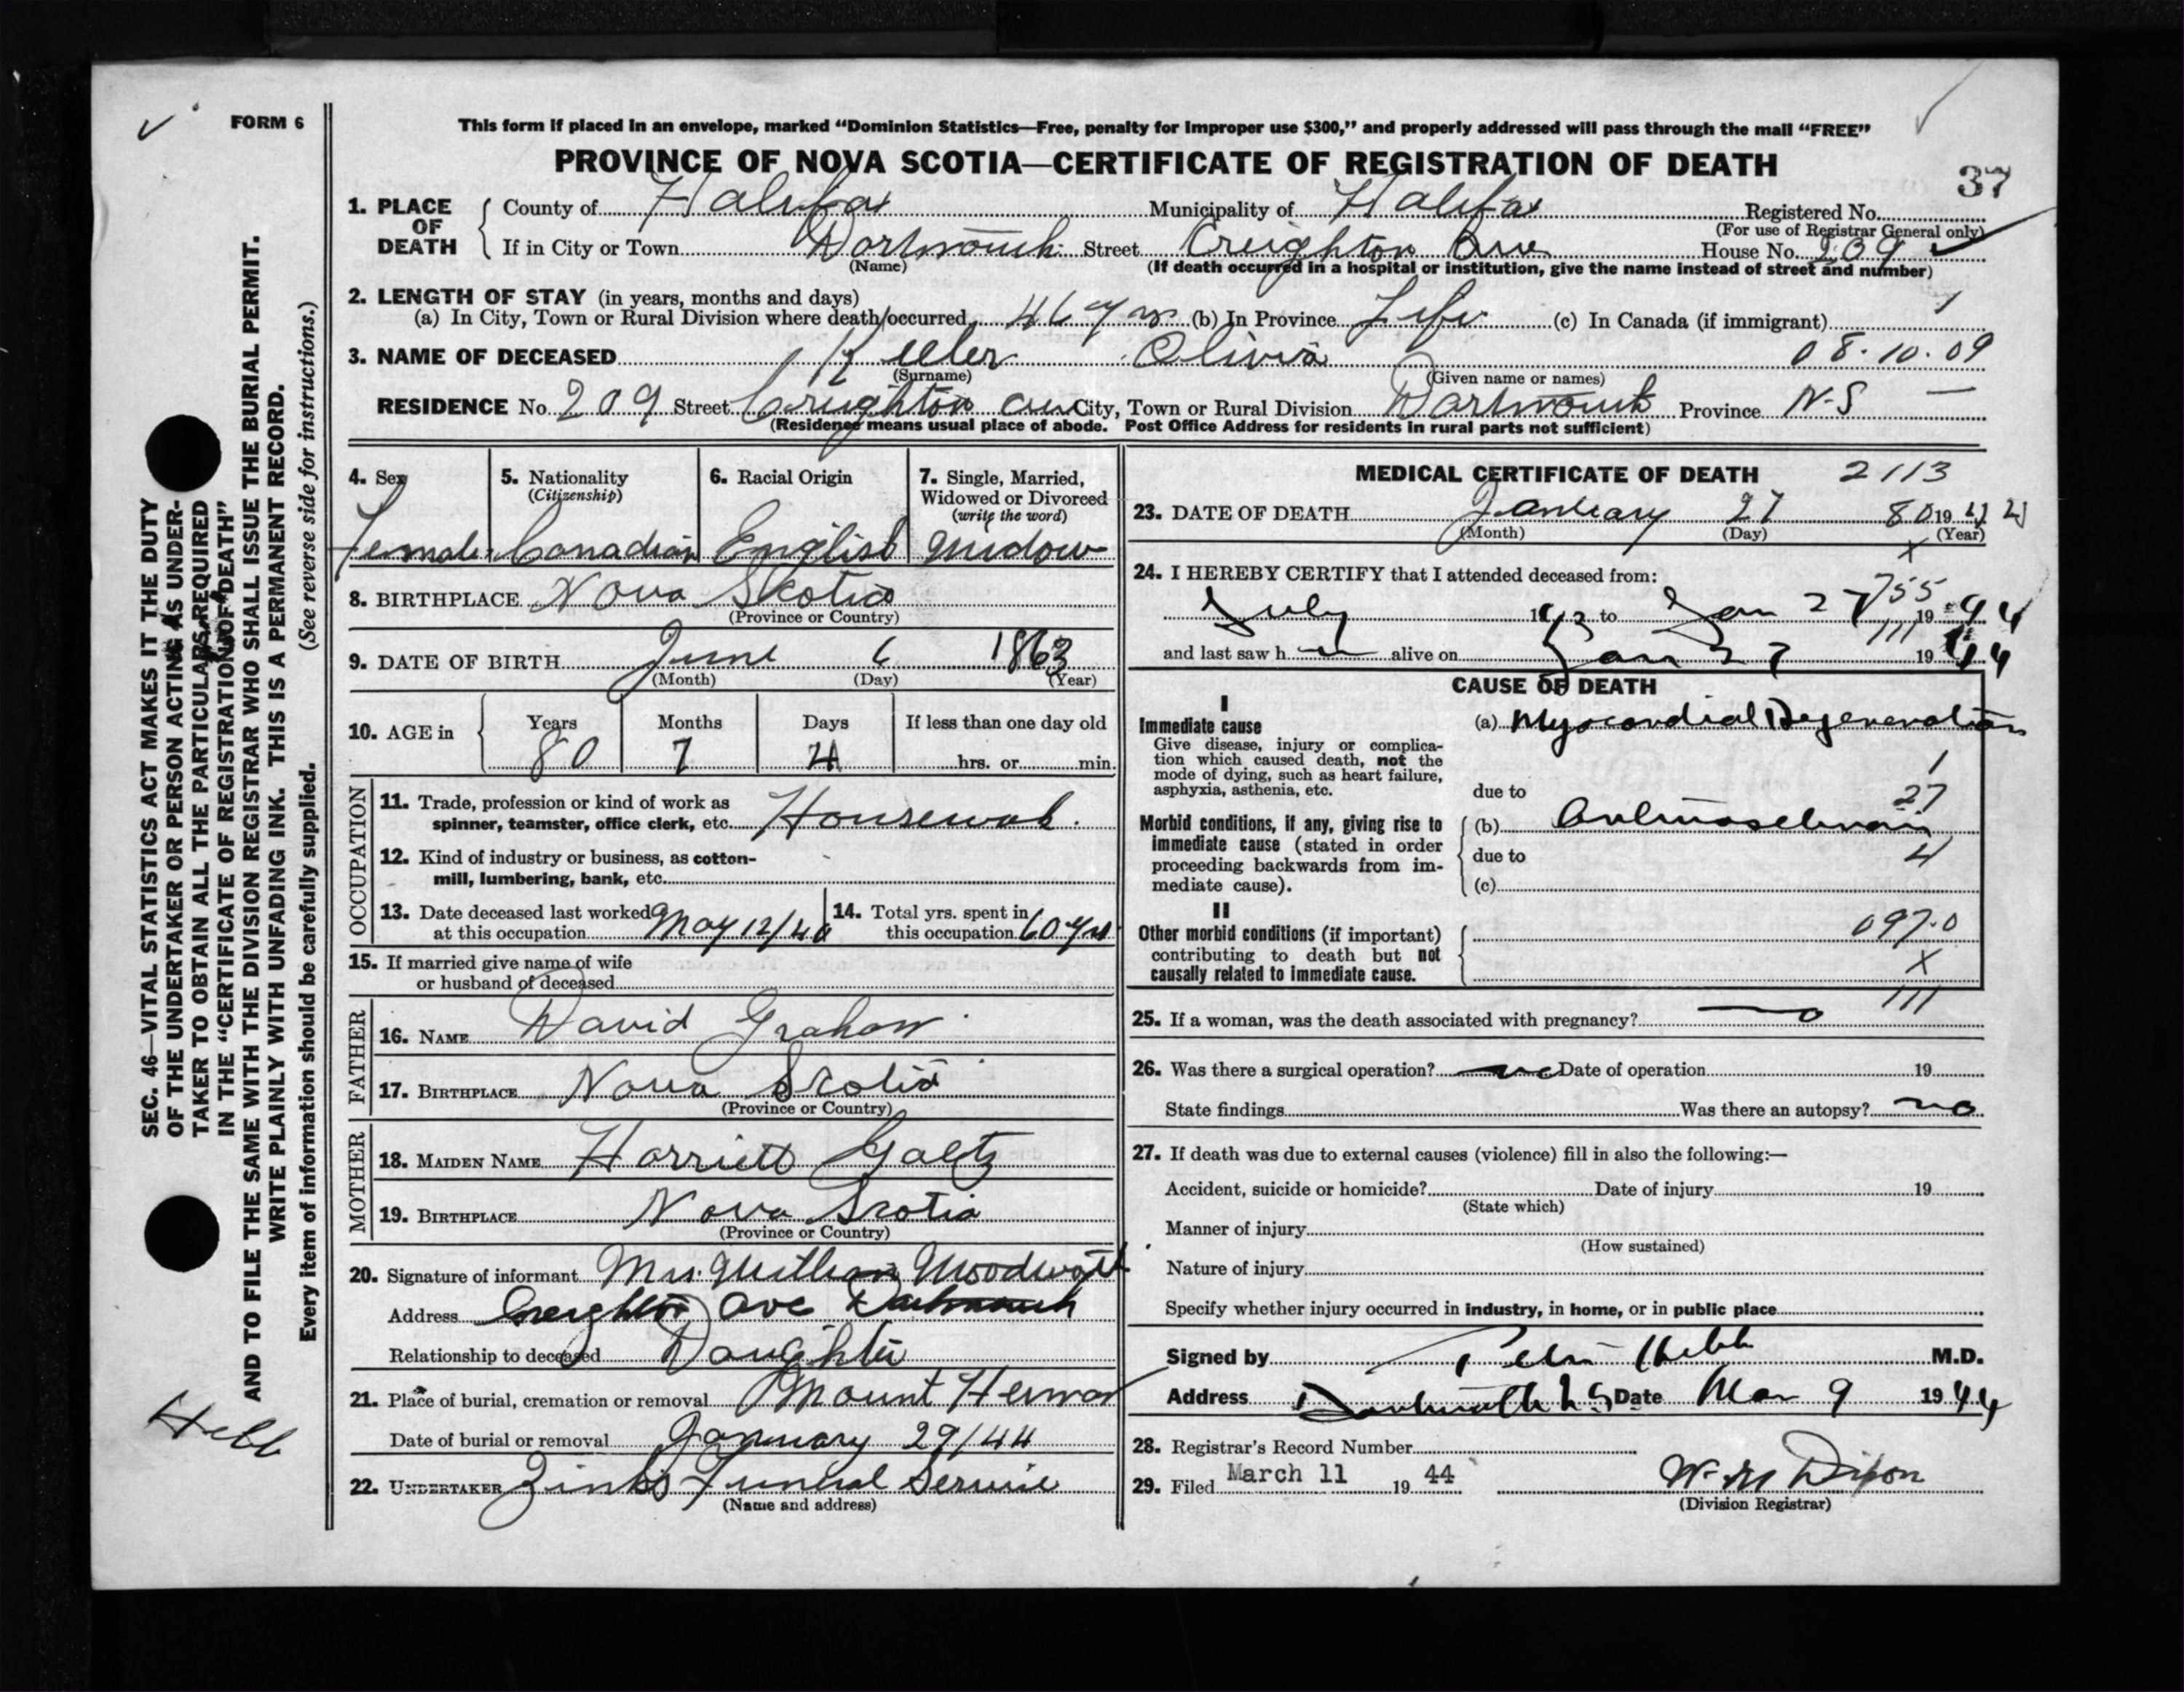 FORM 6
This form if placed in an envelope, marked "Dominion Statistics—Free, penalty for improper use $300," and properly addressed will pass through the mail "FREE"
PROVINCE OF NOVA SCOTIA—CERTIFICATE OF REGISTRATION OF DEATH
37
1. PLACE OF DEATH County of Halifax Municipality of Halifax Registered No.
(For use of Registrar General only)
If in City or Town Dartmouth Street Creighton Ave House No. 209
(Name) (If death occurred in a hospital or institution, give the name instead of street and number)
2. LENGTH OF STAY (in years, months and days)
(a) In City, Town or Rural Division where death occurred 46 yrs (b) In Province Life (c) In Canada (if immigrant) 1
3. NAME OF DECEASED Olivia 08.10.09
(Surname) (Given name or names)
RESIDENCE No. 209 Street Creighton Ave City, Town or Rural Division Dartmouth Province N.S —
(Residence means usual place of abode. Post Office Address for residents in rural parts not sufficient)
4. Sex Female
5. Nationality (Citizenship) Canadian
6. Racial Origin English
7. Single, Married, Widowed or Divorced (write the word) Widow
8. BIRTHPLACE Nova Scotia
(Province or Country)
9. DATE OF BIRTH June 6 1863
(Month) (Day) (Year)
10. AGE in Years Months Days If less than one day old
80 7 21 hrs. or min.
OCCUPATION
11. Trade, profession or kind of work as spinner, teamster, office clerk, etc. Housework.
12. Kind of industry or business, as cotton-mill, lumbering, bank, etc.
13. Date deceased last worked at this occupation May 12/40
14. Total yrs. spent in this occupation 60 yrs
15. If married give name of wife or husband of deceased
FATHER
16. NAME David Graham
17. BIRTHPLACE Nova Scotia
(Province or Country)
MOTHER
18. MAIDEN NAME Harriett Gaetz
19. BIRTHPLACE Nova Scotia
(Province or Country)
20. Signature of informant Mrs. William
Address Creighton Ave Dartmouth
Relationship to deceased Daughter
21. Place of burial, cremation or removal Mount Hermon
Date of burial or removal January 29/44
22. UNDERTAKER Zinks Funeral Service
(Name and address)
MEDICAL CERTIFICATE OF DEATH 2113
23. DATE OF DEATH January 27 80 19 44
(Month) (Day) (Year)
X
24. I HEREBY CERTIFY that I attended deceased from:
755
July 1943 to Jan 27 19 44
111
and last saw h er alive on Jan 27 19 44
CAUSE OF DEATH
I
Immediate cause
Give disease, injury or complication which caused death, not the mode of dying, such as heart failure, asphyxia, asthenia, etc.
(a) Myocardial Degeneration
1
due to 27
Morbid conditions, if any, giving rise to immediate cause (stated in order proceeding backwards from immediate cause).
(b)
due to 4
(c)
II
Other morbid conditions (if important) contributing to death but not causally related to immediate cause.
097.0
X
111
25. If a woman, was the death associated with pregnancy? no
26. Was there a surgical operation? no Date of operation 19
State findings Was there an autopsy? no
27. If death was due to external causes (violence) fill in also the following:—
Accident, suicide or homicide? Date of injury 19
(State which)
Manner of injury
(How sustained)
Nature of injury
Specify whether injury occurred in industry, in home, or in public place
Signed by Hebb M.D.
Address Dartmouth N.S Date Mar 9 19 44
28. Registrar's Record Number
29. Filed March 11 19 44 W. M Dixon
(Division Registrar)
SEC. 46—VITAL STATISTICS ACT MAKES IT THE DUTY
OF THE UNDERTAKER OR PERSON ACTING AS UNDER-
TAKER TO OBTAIN ALL THE PARTICULARS REQUIRED
IN THE "CERTIFICATE OF REGISTRATION OF DEATH"
AND TO FILE THE SAME WITH THE DIVISION REGISTRAR WHO SHALL ISSUE THE BURIAL PERMIT.
WRITE PLAINLY WITH UNFADING INK. THIS IS A PERMANENT RECORD.
Every item of information should be carefully supplied. (See reverse side for instructions.)
Hebb